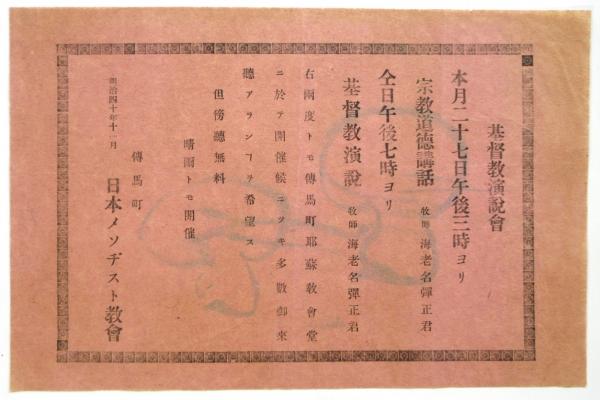 基督教演說會
本月二十七日午後三時ヨリ
宗敎道德講話 牧師 海老名彈正君
仝日午後七時ヨリ
基督教演說 牧師 海老名彈正君
右兩度トモ傳馬町耶蘇敎會堂
ニ於テ開催候ニツキ多數御來
聽アランヿヲ希望ス
但傍聽無料
晴雨トモ開催
明治四十年十一月
傳馬町
日本メソヂスト敎會